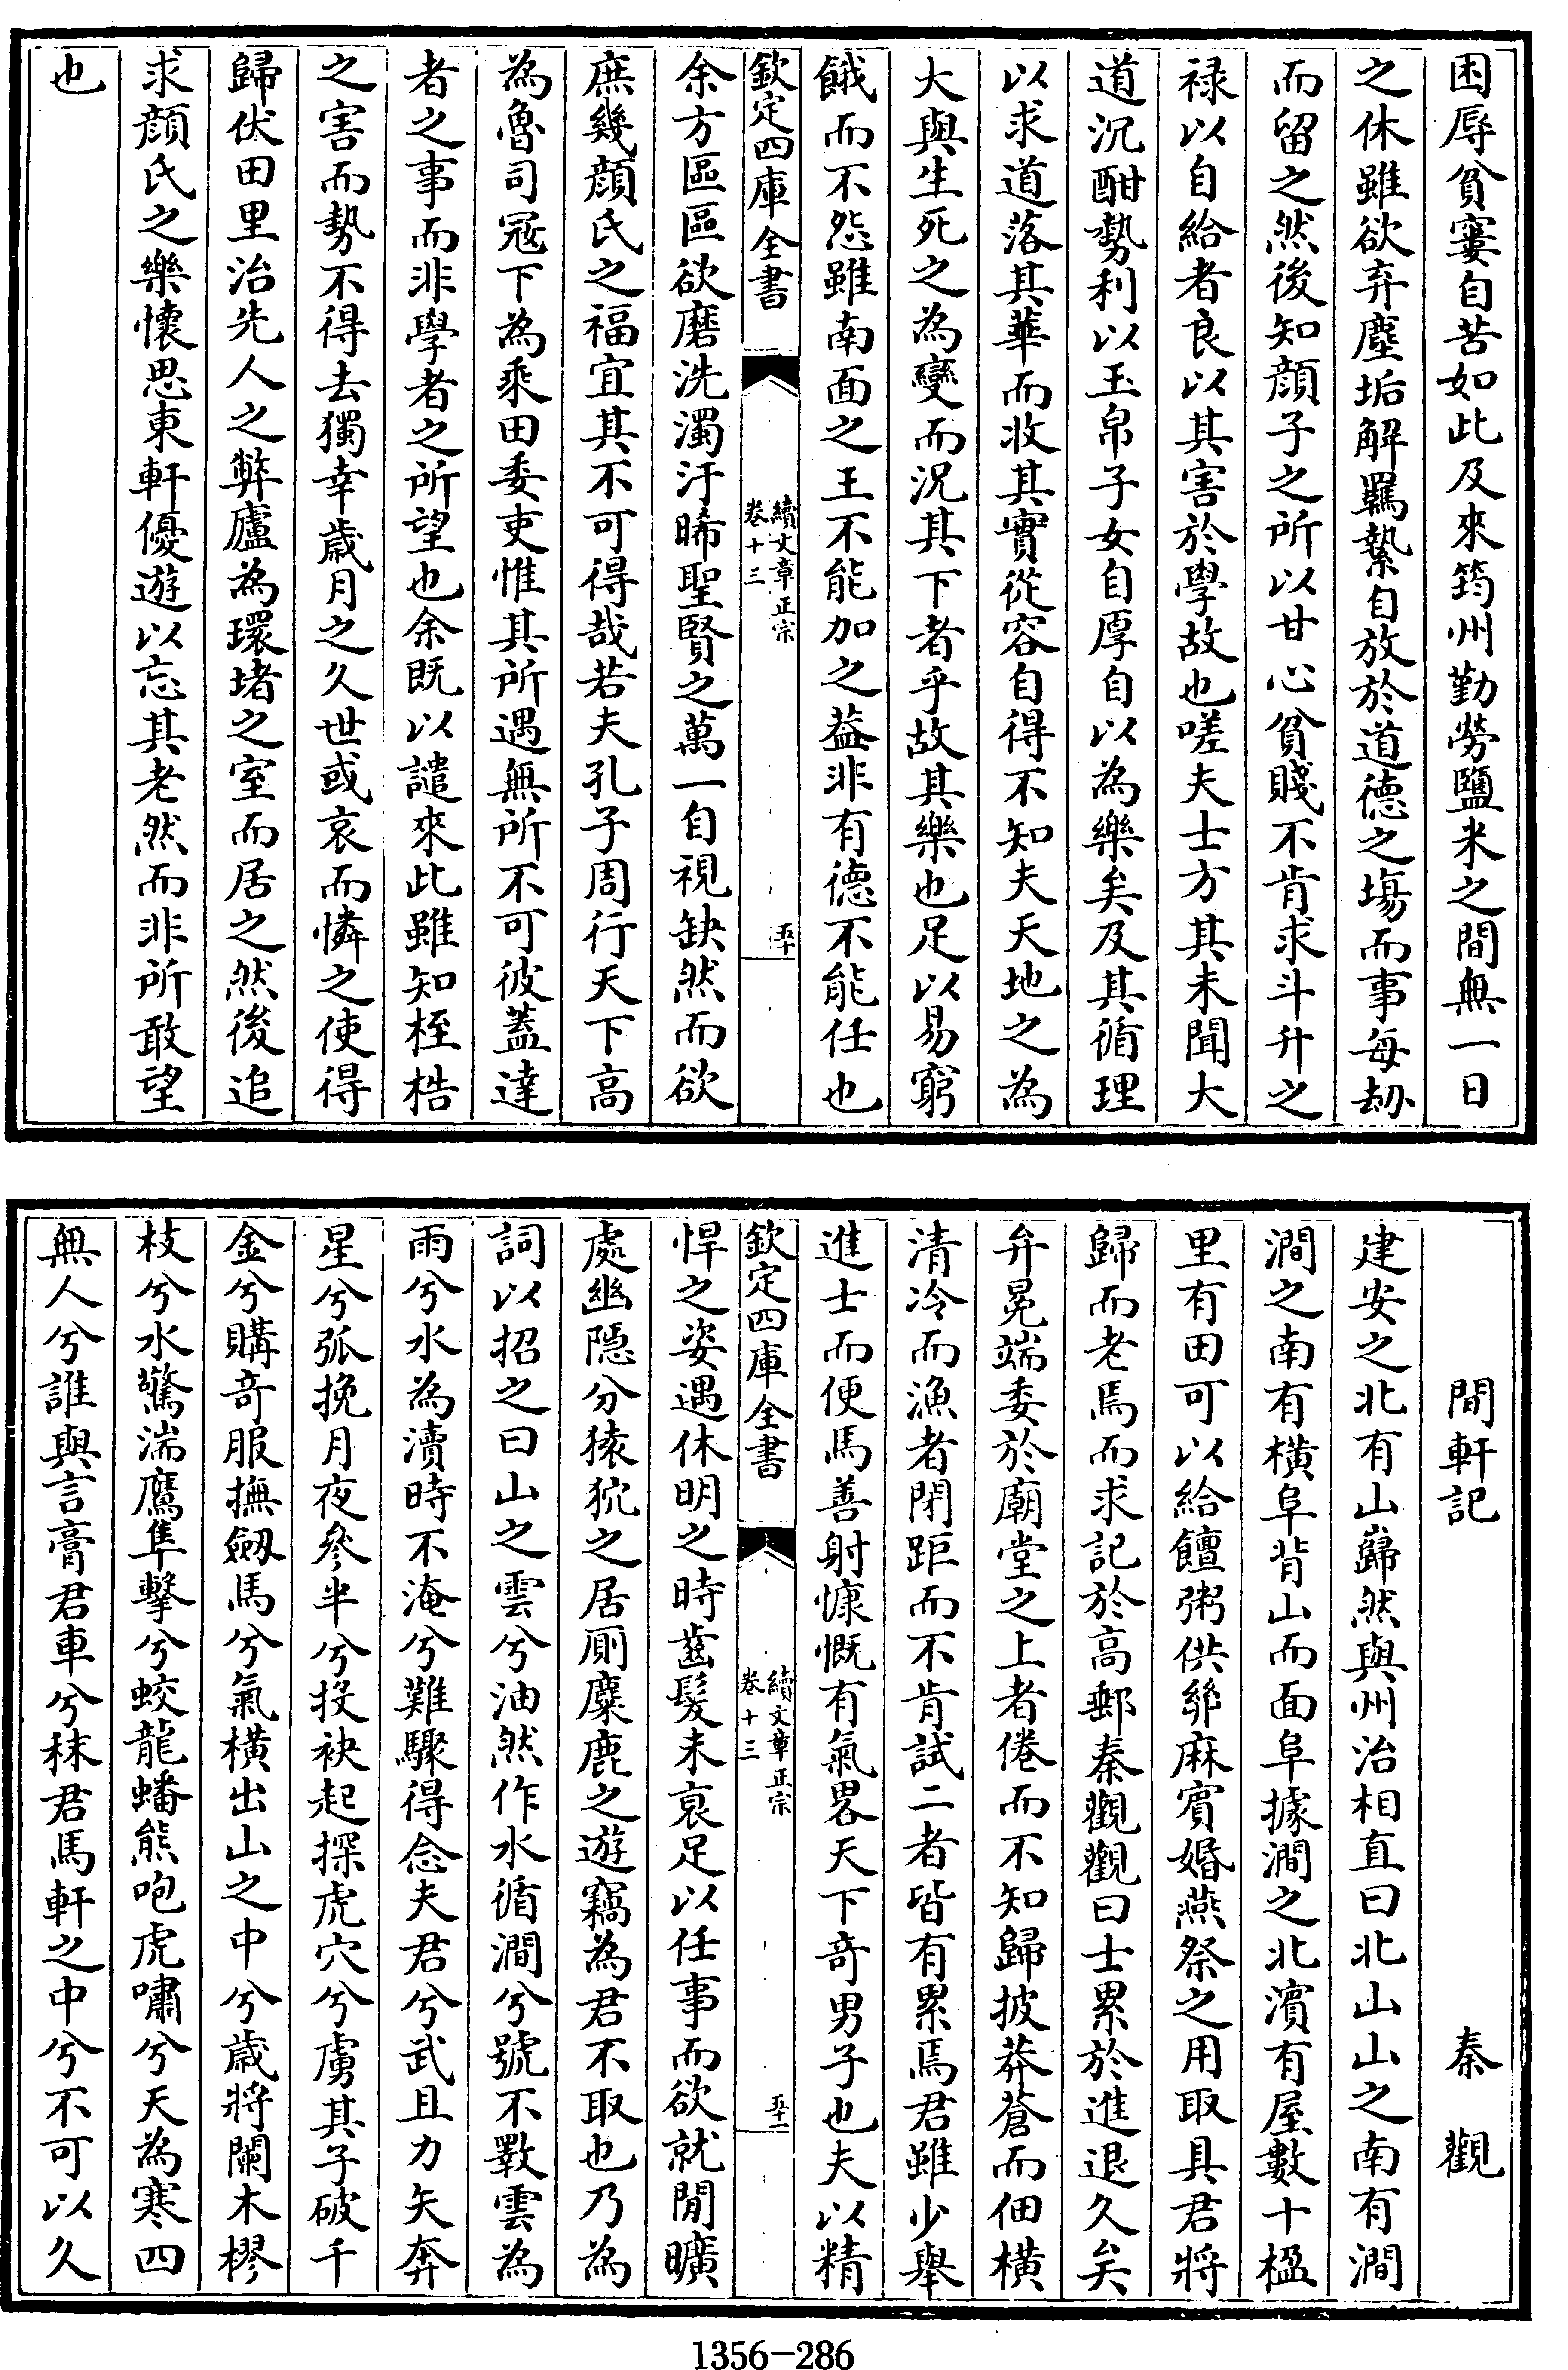 困辱貧窶自苦如此及來筠州勤勞鹽米之間無一日
之休雖欲弃塵垢解羈縶自放於道德之塲而事每劫
而留之然後知顔子之所以甘心貧賤不肯求斗升之
禄以自給者良以其害於學故也嗟夫士方其未聞大
道沉酣勢利以玉帛子女自厚自以為樂矣及其循理
以求道落其華而收其實從容自得不知夫天地之為
大與生死之為變而況其下者乎故其樂也足以易窮
餓而不怨雖南面之王不能加之益非有德不能任也
欽定四庫全書
續文章正宗
卷十三
五十
余方區區欲磨洗濁汙晞聖賢之萬一自視缺然而欲
庶幾顔氏之福宜其不可得哉若夫孔子周行天下高
為魯司冦下為乘田委吏惟其所遇無所不可彼蓋達
者之事而非學者之所望也余既以譴來此雖知桎梏
之害而勢不得去獨幸歲月之久世或哀而憐之使得
歸伏田里治先人之弊廬為環堵之室而居之然後追
求顔氏之樂懷思東軒優遊以忘其老然而非所敢望
也
閒軒記 秦觀
建安之北有山巋然與州治相直曰北山山之南有澗
澗之南有橫阜背山而面阜據澗之北濵有屋數十楹
里有田可以給饘粥供絲麻賓婚燕祭之用取具君將
歸而老焉而求記於高郵秦觀觀曰士累於進退久矣
弁冕端委於廟堂之上者倦而不知歸披莽蒼而佃橫
清冷而漁者閉距而不肯試二者皆有累焉君雖少舉
進士而便馬善射慷慨有氣畧天下奇男子也夫以精
欽定四庫全書
續文章正宗
卷十三
五十一
悍之姿遇休明之時齒髮未衰足以任事而欲就閒曠
處幽隱分猿狖之居厠麋鹿之遊竊為君不取也乃為
詞以招之曰山之雲兮油然作水循澗兮號不斁雲為
雨兮水為瀆時不淹兮難驟得念夫君兮武且力矢奔
星兮弧挽月夜參半兮投袂起探虎穴兮虜其子破千
金兮購奇服撫劒馬兮氣橫出山之中兮歲將闌木樛
枝兮水驚湍鷹隼擊兮蛟龍蟠熊咆虎嘯兮天為寒四
無人兮誰與言膏君車兮秣君馬軒之中兮不可以久
1356-286